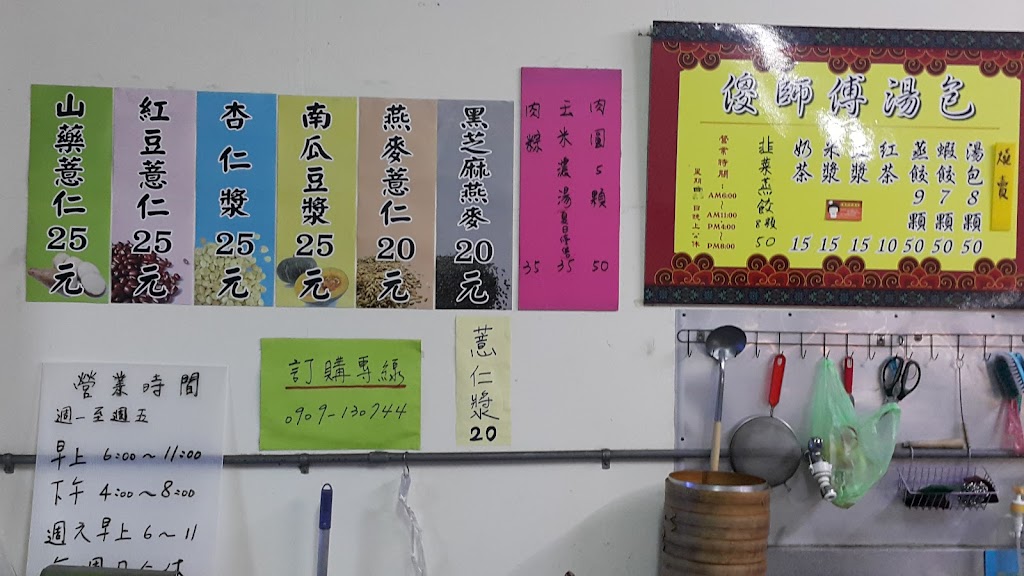 山藥薏仁25元
紅豆薏仁25元
杏仁漿25元
南瓜豆漿25元
燕麥薏仁20元
黑芝麻燕麥20元
肉圓5顆 50
玉米濃湯夏日停售 35
肉粽 35
傻師傅湯包
湯包8顆 50
蝦餃7顆 50
蒸餃9顆 50
紅茶 10
豆漿 15
米漿 15
奶茶 15
韭菜蒸餃8顆 50
營業時間:
AM6:00
AM11:00
PM4:00
PM8:00
訂購專線
0909-130744
薏仁漿
20
營業時間
週一至週五
早上 6:00~11:00
下午 4:00~8:00
週六早上6~11